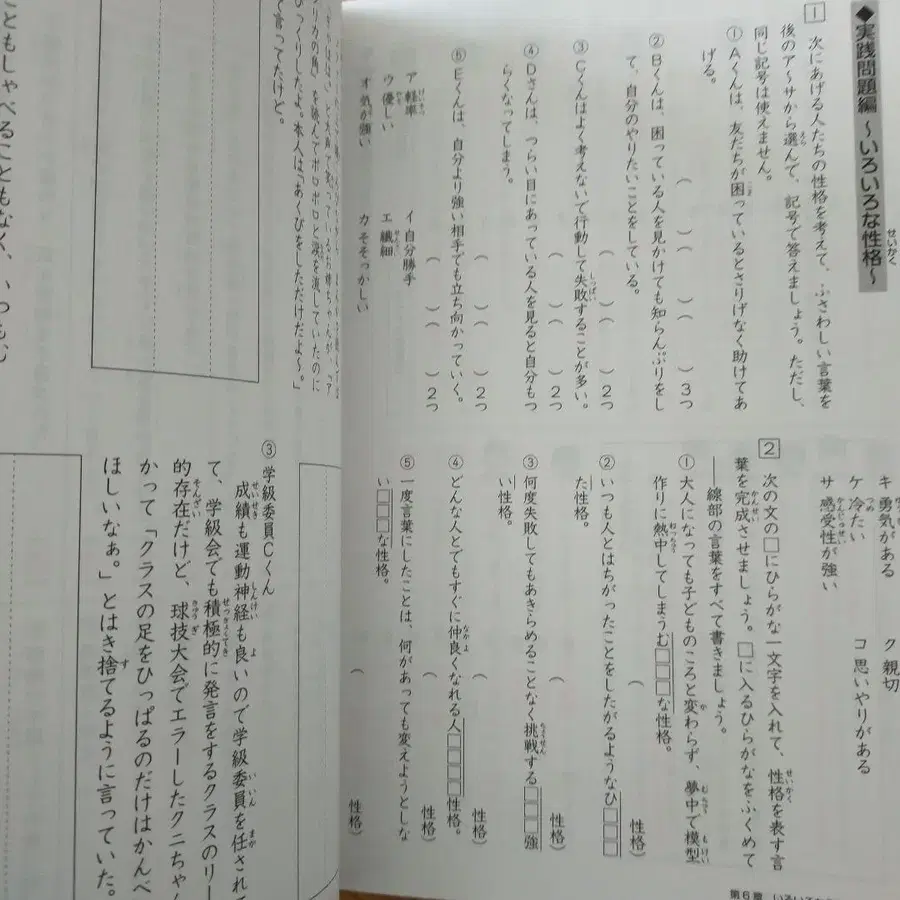 ◆実践問題編 〜いろいろな性格〜
1 次にあげる人たちの性格を考えて、ふさわしい言葉を
後のア〜サから選んで、記号で答えましょう。ただし、
同じ記号は使えません。
①Aくんは、友だちが困っているとさりげなく助けてあ
げる。
（ ）（ ）（ ）３つ
②Bくんは、困っている人を見かけても知らんぷりをし
て、自分のやりたいことをしている。
（ ）（ ）２つ
③Cくんはよく考えないで行動して失敗することが多い。
（ ）（ ）２つ
④Dさんは、つらい目にあっている人を見ると自分もつ
らくなってしまう。
（ ）（ ）２つ
⑤Eくんは、自分より強い相手でも立ち向かっていく。
（ ）（ ）２つ
ア 軽率 イ 自分勝手
ウ 優しい エ 繊細
オ 気が強い カ そそっかしい
キ 勇気がある ク 親切
ケ 冷たい コ 思いやりがある
サ 感受性が強い
2 次の文の□にひらがな一文字を入れて、性格を表す言
葉を完成させましょう。□に入るひらがなをふくめて
――線部の言葉をすべて書きましょう。
①大人になっても子どものころと変わらず、夢中で模型
作りに熱中してしまうむ□□□な性格。
（ 性格）
②いつも人とはちがったことをしたがるようなひ□□□
た性格。
（ 性格）
③何度失敗してもあきらめることなく挑戦する□□□強
い性格。
（ 性格）
④どんな人とでもすぐに仲良くなれる人□□□□性格。
（ 性格）
⑤一度言葉にしたことは、何があっても変えようとしな
い□□□な性格。
（ 性格）
第６章
フリカの角』を読んでポロポロと涙を流していたのに
びっくりしたよ。本人は「あくびをしただけだよ〜。」
って言ってたけど。
③学級委員Cくん
成績も運動神経も良いので学級委員を任されて
て、学級会でも積極的に発言をするクラスのリー
的存在だけど、球技大会でエラーしたクニちゃん
かって「クラスの足をひっぱるのだけはかんべ
ほしいなぁ。」とはき捨てるように言っていた。
こともしゃべることもなく、いつも、む